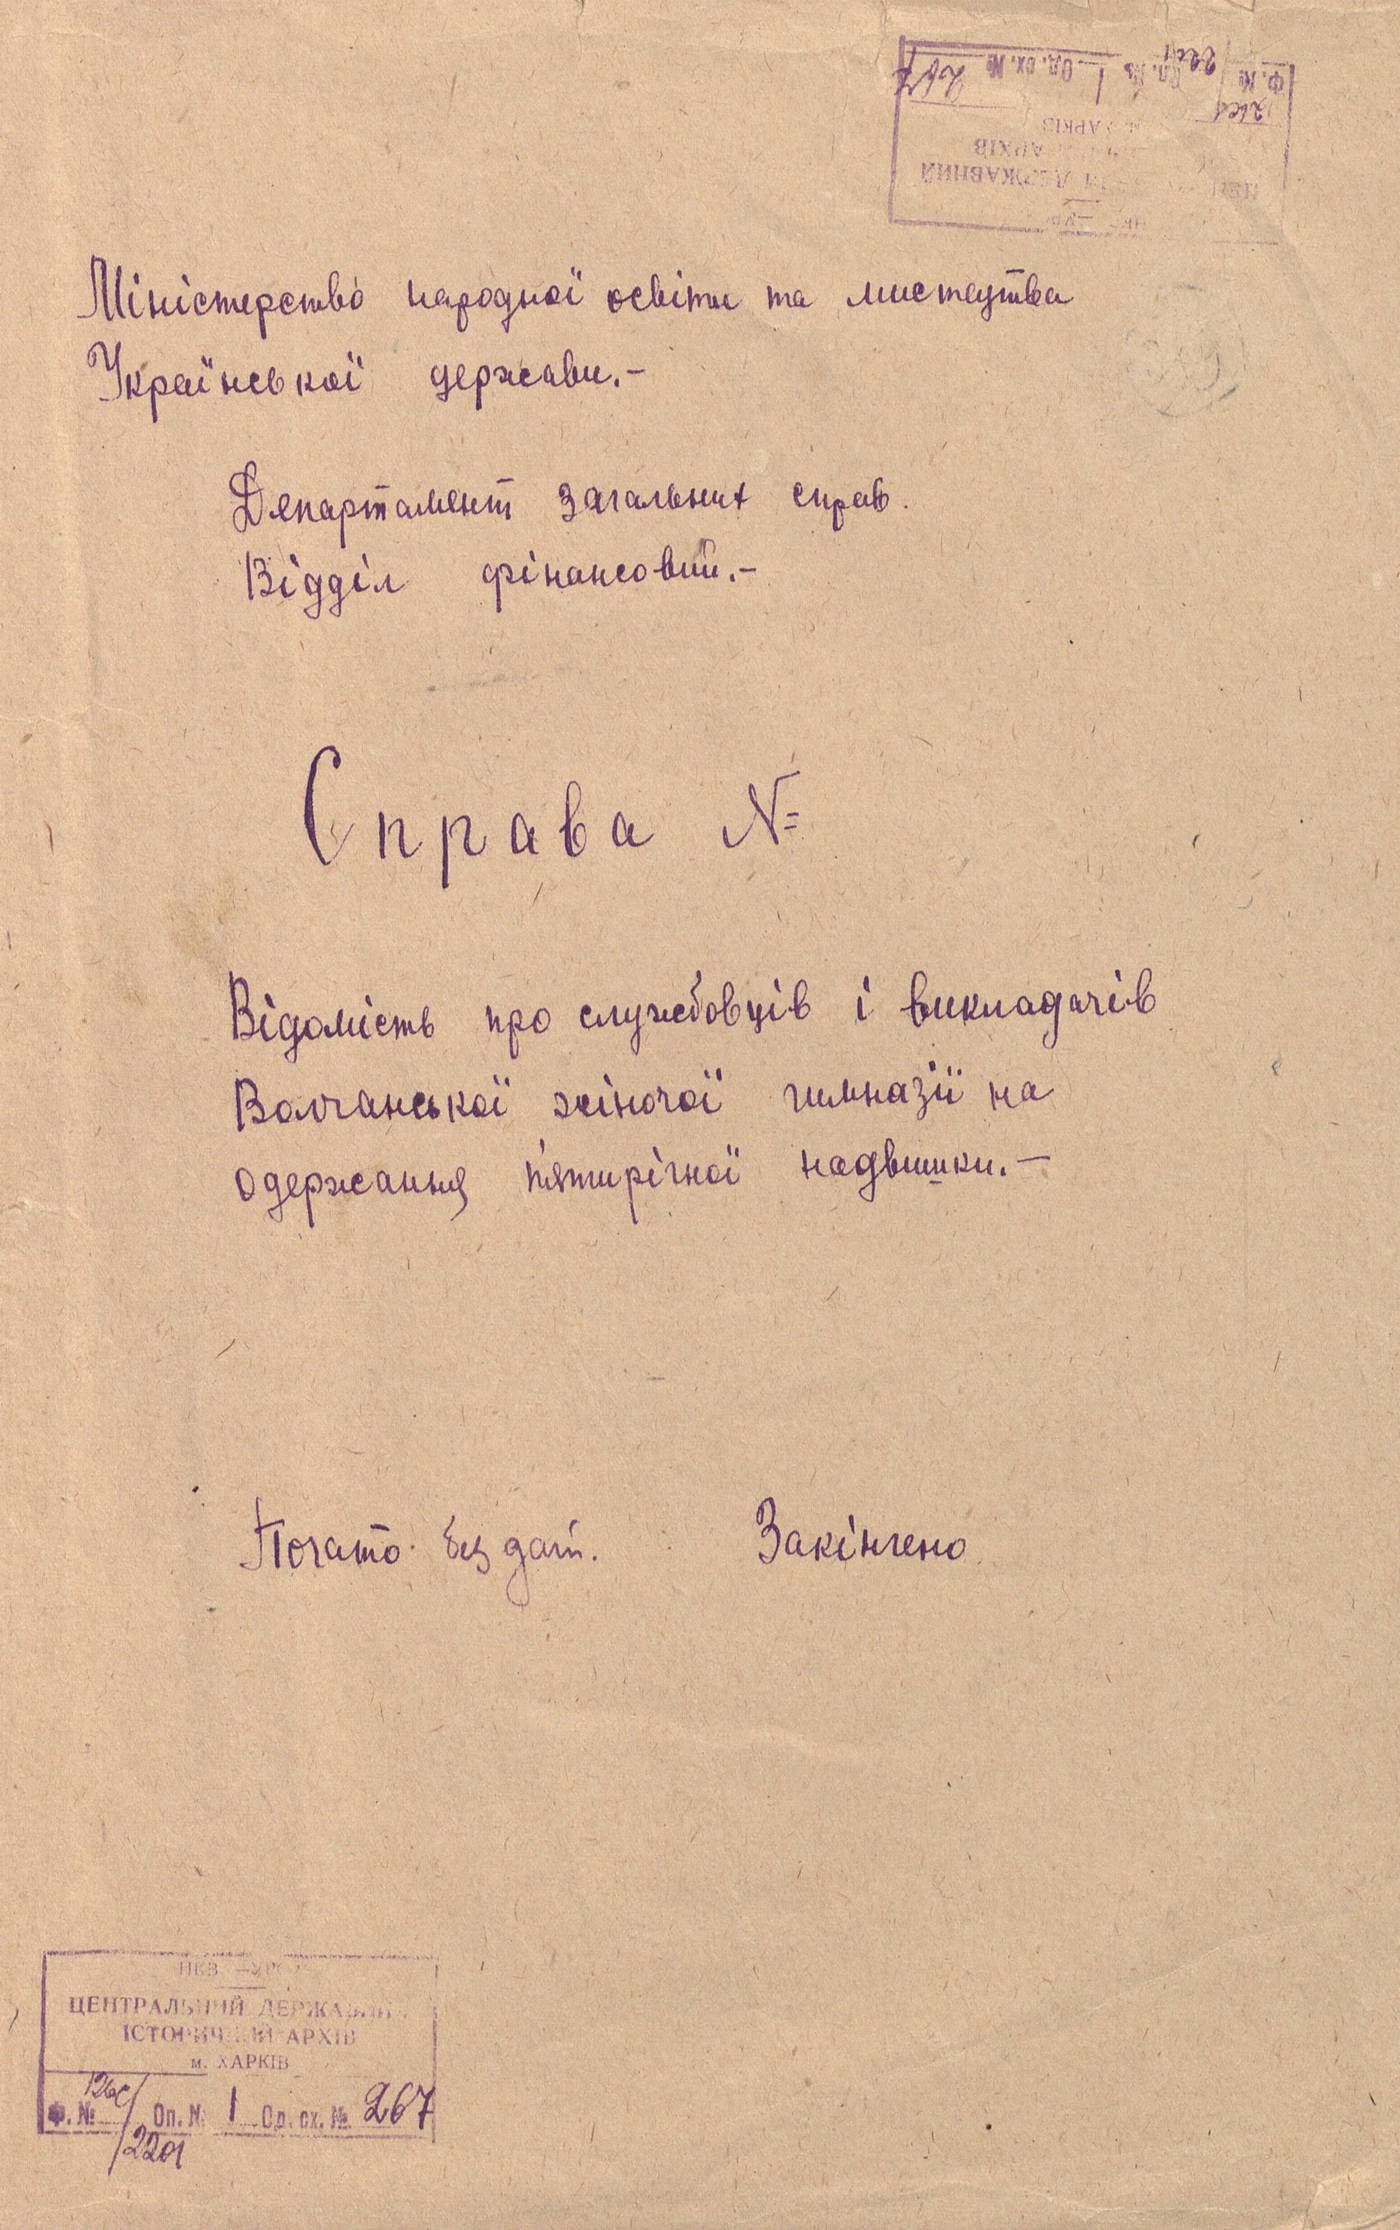 Ф. № Оп. № 1 Од. сх. № 267
м. ХАРКІВ
АРХІВ
ДЕРЖАВНИЙ
Міністерство народної освіти та мистецтва
Української держави.-
Департамент загальних справ.
Відділ фінансовий.-
Справа №
Відомість про службовців і викладачів
Волчанської жіночої гимназії на
одержання пятирічної надвишки.-
Почато без дат. Закінчено
НКВС-УРСР
ЦЕНТРАЛЬНИЙ ДЕРЖАВНИЙ
ІСТОРИЧНИЙ АРХІВ
м. ХАРКІВ
Ф. № Оп. № 1 Од. сх. № 267
2201